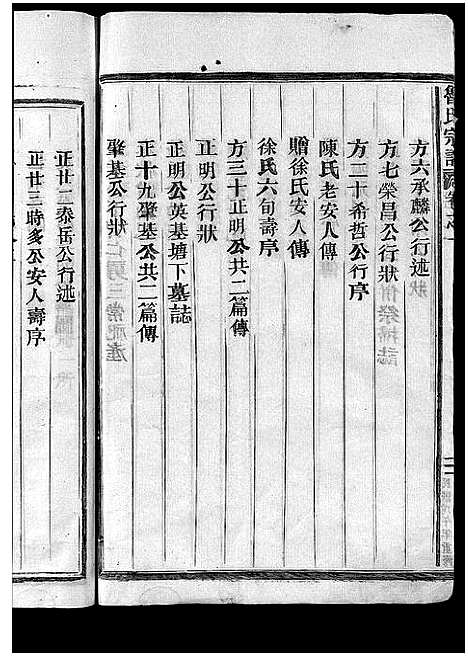 方六承麟公行述
方七榮昌公行狀
方二十希哲公行序
陳氏老安人傳
贈徐氏安人傳
徐氏六旬壽序
方三十正明公共二篇傳
正明公行狀
正明公英基塘下墓誌
正十九肇基公共二篇傳
肇基公行狀
正廿二泰岳公行述
正廿三時多公安人壽序